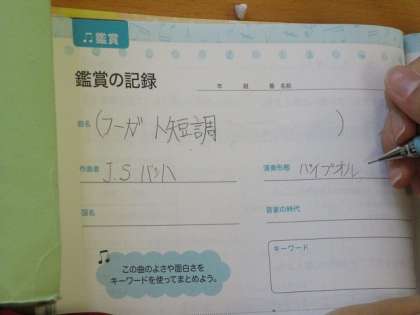 ♫鑑賞
鑑賞の記録
年 組 番 名前
曲名 (フーガ ト短調 )
作曲者 J.S バッハ
演奏形態 パイプオル
国名
音楽の時代
この曲のよさや面白さを
キーワードを使ってまとめよう。
キーワード